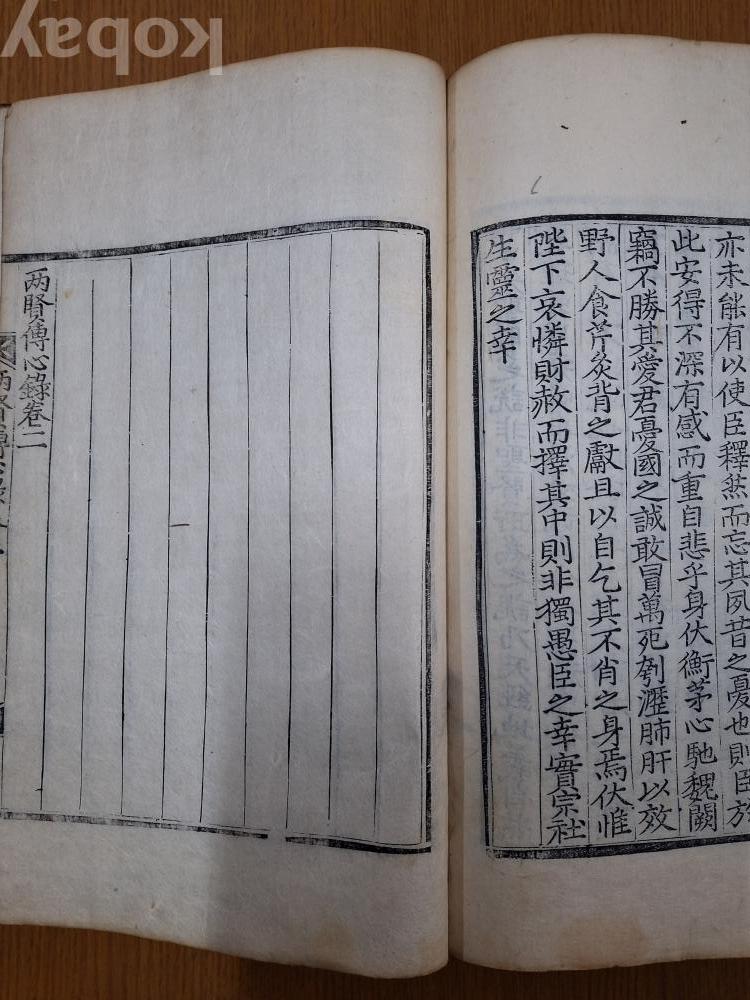 亦未能有以使臣釋然而忘其夙昔之憂也則臣於
此安得不深有感而重自悲乎身伏衡茅心馳魏闕
竊不勝其愛君憂國之誠敢冒萬死刳瀝肺肝以效
野人食芹炙背之獻且以自乞其不肖之身焉伏惟
陛下哀憐財赦而擇其中則非獨愚臣之幸實宗社
生靈之幸
两賢傳心錄卷二
kobay